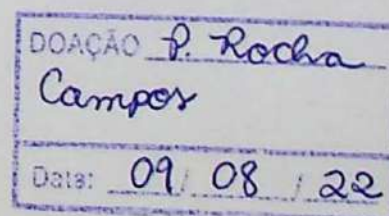 DOAÇÃO P. Rocha
Campos
Data: 09 / 08 / 22